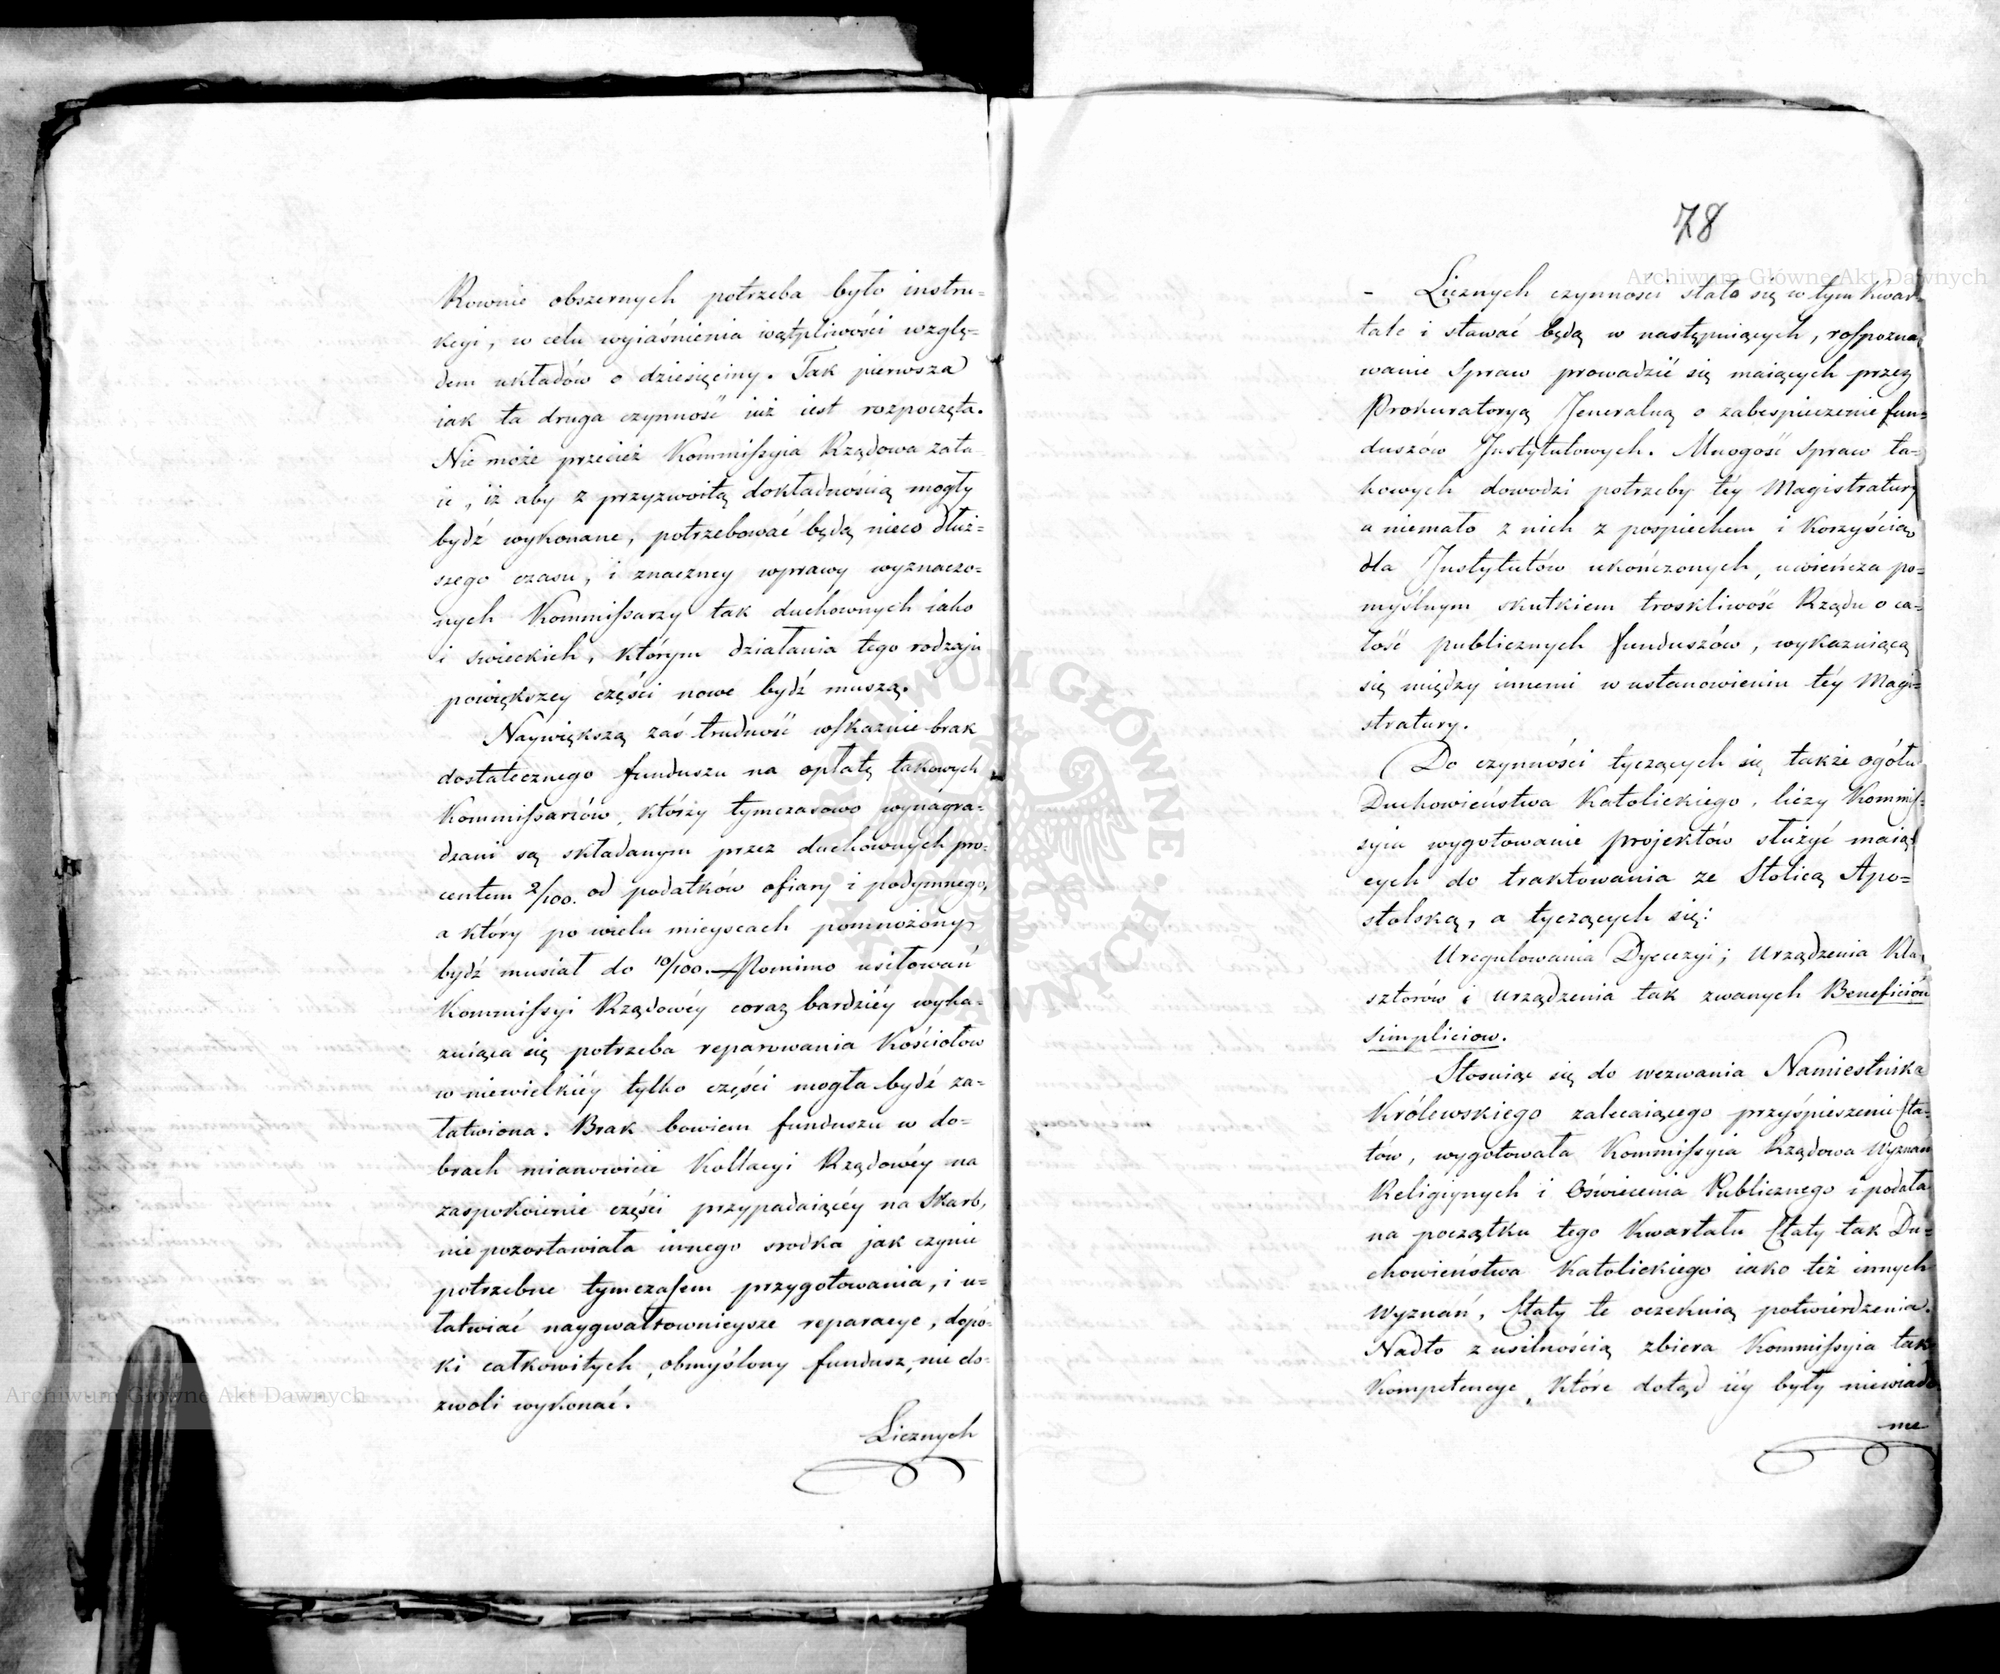 Rownie obszernych potrzeba było instru-
kcyi, w celu wyiaśnienia wątpliwości wzglę-
dem układów o dziesięciny. Tak pierwsza
iak ta druga czynność iuż iest rozpoczęta.
Nie może przecież Kommissyia Rządowa zata-
ić, iż aby z przyzwoitą dokładnością mogły
bydź wykonane, potrzebować będą nieco dłuż-
szego czasu, i znaczney wprawy wyznaczo-
nych Kommissarzy tak duchownych iako
i swieckich, którym działania tego rodzaju
powiększey części nowe bydź muszą.
Naywiększą zaś trudność wskazuie brak
dostatecznego funduszu na opłatę takowych
Kommissarzów, którzy tymczasowo wynagra-
dzani są składanym przez duchownych pro-
centem 2/100. od podatków ofiary i podymnego,
a który po wielu mieyscach pomnożony
bydź musiał do 10/100. — Pomimo usiłowań
Kommissyi Rządowéy coraz bardziéy wyka-
zuiąca się potrzeba reparowania Kościołow
w niewielkiéy tylko części mogła bydź za-
łatwiona. Brak bowiem funduszu w do-
brach mianowicie Kollacyi Rządowéy na
zaspokoienie części przypadaiącéy na Skarb,
nie pozostawiała innego srodka jak czynić
potrzebne tymczasem przygotowania, i u-
łatwiać naygwałtownieysze reparacye, dopó-
ki całkowitych, obmyślony fundusz, nie do-
zwoli wykonać.
Licznych
78
- Licznych czynnosci stało się w tym Kwar-
tale i stawać będą w następuiących, rospozna-
wanie Spraw prowadzić się maiących przez
Prokuratoryą Jeneralną o zabespieczenie fun-
duszów Instytutowych. Mnogość Spraw ta-
kowych dowodzi potrzeby téy Magistratury
a niemało z nich z pospiechem i Korzyścią
dla Instytutów ukończonych, uwieńcza po-
myślnym skutkiem troskliwość Rządu o ca-
łość publicznych funduszów, wykazuiącą
się między innemi w ustanowieniu téy Magi-
stratury.
Do czynności tyczących się także ogółu
Duchowieństwa Katolickiego, liczy Kommis-
syia wygotowanie projektów służyć maią-
cych do traktowania ze Stolicą Apo-
stolską, a tyczących się:
Uregulowania Dyecezyi; Urządzenia Kla-
sztorów i Urządzenia tak zwanych Beneficiów
simpliciow.
Stosuiąc się do wezwania Namiestnika
Królewskiego zalecaiącego przyśpieszenie Eta-
tów, wygotowała Kommissyia Rządowa Wyznań
Religiynych i Oświecenia Publicznego i podała
na początku tego Kwartału Etaty tak Du-
chowieństwa Katolickiego iako też innych
Wyznań. Etaty te oczekuią potwierdzenia.
Nadto z usilnością zbiera Kommissyia tak
Kompetencye, które dotąd iéy były niewiado-
me
Archiwum Główne Akt Dawnych
Archiwum Główne Akt Dawnych
ARCHIWUM GŁÓWNE AKT DAWNYCH